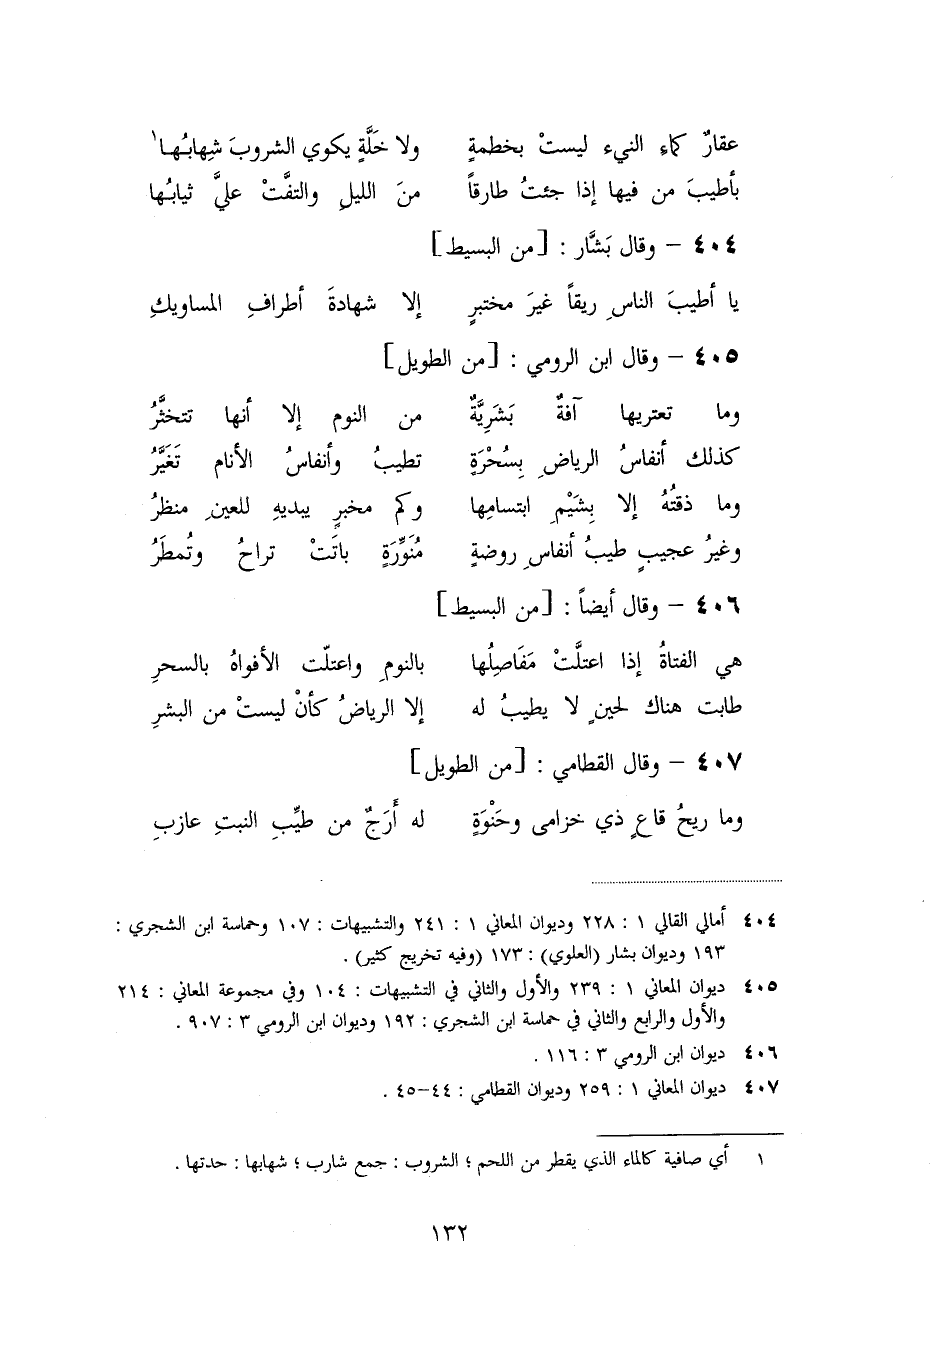 عقارٌ كماءِ النيء ليستْ بخطمةٍ ولا خَلَّةٍ يكوي الشروبَ شِهابُها١
بأطيبَ من فيها إذا جئتُ طارقاً منَ الليلِ والتفَّتْ عليَّ ثيابُها
٤٠٤ – وقال بَشَّار : [من البسيط]
يا أطيبَ الناسِ ريقاً غيرَ مختبرٍ إلا شهادةَ أطرافِ المساويكِ
٤٠٥ – وقال ابن الرومي : [من الطويل]
وما تعتريها آفةٌ بَشَرِيَّةٌ من النوم إلا أنها تتخثَّرُ
كذلك أنفاسُ الرياضِ بِسُحْرَةٍ تطيبُ وأنفاسُ الأنام تَغَيَّرُ
وما ذقتُهُ إلا بِشَيْمِ ابتسامِها وكم مخبرٍ يبديهِ للعينِ منظرُ
وغيرُ عجيبٍ طيبُ أنفاسِ روضةٍ مُنَوِّرَةٍ باتَتْ تراحُ وتُمطَرُ
٤٠٦ – وقال أيضاً : [من البسيط]
هي الفتاةُ إذا اعتلَّتْ مَفَاصِلُها بالنومِ واعتلّت الأفواهُ بالسحرِ
طابت هناك لحينٍ لا يطيبُ له إلا الرياضُ كأنْ ليستْ من البشرِ
٤٠٧ – وقال القطامي : [من الطويل]
وما ريحُ قاعٍ ذي خزامى وحَنْوَةٍ له أَرَجٌ من طيِّبِ النبتِ عازبِ
٤٠٤ أمالي القالي ١ : ٢٢٨ وديوان المعاني ١ : ٢٤١ والتشبيهات : ١٠٧ وحماسة ابن الشجري :
١٩٣ وديوان بشار (العلوي) : ١٧٣ (وفيه تخريج كثير) .
٤٠٥ ديوان المعاني ١ : ٢٣٩ والأول والثاني في التشبيهات : ١٠٤ وفي مجموعة المعاني : ٢١٤
والأول والرابع والثاني في حماسة ابن الشجري : ١٩٢ وديوان ابن الرومي ٣ : ٩٠٧ .
٤٠٦ ديوان ابن الرومي ٣ : ١١٦ .
٤٠٧ ديوان المعاني ١ : ٢٥٩ وديوان القطامي : ٤٤–٤٥ .
١ أي صافية كالماء الذي يقطر من اللحم ؛ الشروب : جمع شارب ؛ شهابها : حدتها .
١٣٢